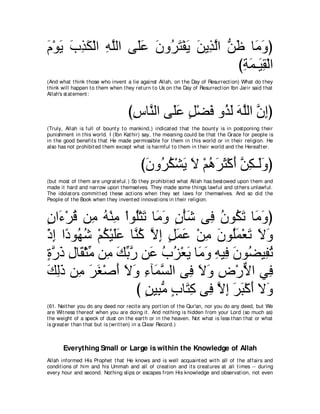 وَمَا ظَنُّ الَّذِينَ يَفْتَرُونَ عَلَى اللَّهِ الْكَذِبَ يَوْمَ
الْقِيَـمَةِ)
(And what think those who invent a lie against Allah, on the Day of Resurrection) What do they
think will happen to them when they return to Us on the Day of Resurrection Ibn Jarir said that
Allah's statement:
(إِنَّ اللَّهَ لَذُو فَضْلٍ عَلَى النَّاسِ)
(Truly, Allah is full of bounty to mankind,) indicated that the bounty is in postponing their
punishment in this world. I (Ibn Kathir) say, the meaning could be that the Grace for people is
in the good benefits that He made permissable for them in this world or in their religion. He
also has not prohibited them except what is harmful to them in their world and the Hereafter.
(وَلَـكِنَّ أَكْثَرَهُمْ لاَ يَشْكُرُونَ)
(but most of them are ungrateful.) So they prohibited what Allah has bestowed upon them and
made it hard and narrow upon themselves. They made some things lawful and others unlawful.
The idolators committed these actions when they set laws for themselves. And so did the
People of the Book when they invented innovations in their religion.
(وَمَا تَكُونُ فِى شَأْنٍ وَمَا تَتْلُواْ مِنْهُ مِن قُرْءَانٍ
وَلاَ تَعْمَلُونَ مِنْ عَمَلٍ إِلاَّ كُنَّا عَلَيْكُمْ شُهُودًا إِذْ
تُفِيضُونَ فِيهِ وَمَا يَعْزُبُ عَن رَّبِّكَ مِن مِّثْقَالِ ذَرَّةٍ
فِي الاٌّرْضِ وَلاَ فِى السَّمَآءِ وَلاَ أَصْغَرَ مِن ذَلِكَ
وَلا أَكْبَرَ إِلاَّ فِى كِتَابٍ مُّبِينٍ )
(61. Neither you do any deed nor recite any portion of the Qur'an, nor you do any deed, but We
are Witness thereof when you are doing it. And nothing is hidden from your Lord (so much as)
the weight of a speck of dust on the earth or in the heaven. Not what is less than that or what
is greater than that but is (written) in a Clear Record.)
Everything Small or Large is within the Knowledge of Allah
Allah informed His Prophet that He knows and is well acquainted with all of the affairs and
conditions of him and his Ummah and all of creation and its creatures at all times -- during
every hour and second. Nothing slips or escapes from His knowledge and observation, not even